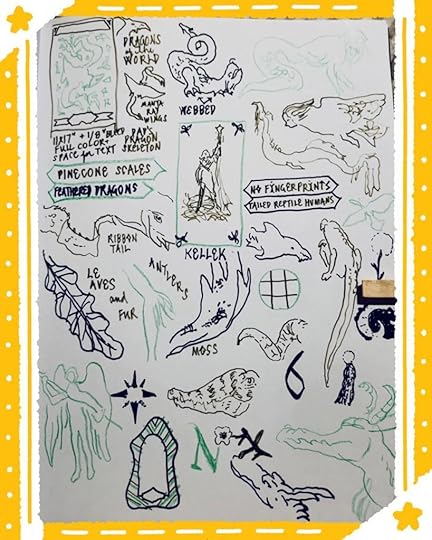 DRAGONS
of the
WORLD
MANTA
RAY
WINGS
WEBBED
11X17" + 1/8" BLEED
FULL COLOR +
SPACE for TEXT
DRAGON
SKELETON
PINECONE SCALES
FEATHERED DRAGONS
NO FINGERPRINTS
TAILED REPTILE HUMANS
RIBBON
TAIL
KELLEK
LE
AVES
and
FUR
ANTLERS
MOSS
6
N